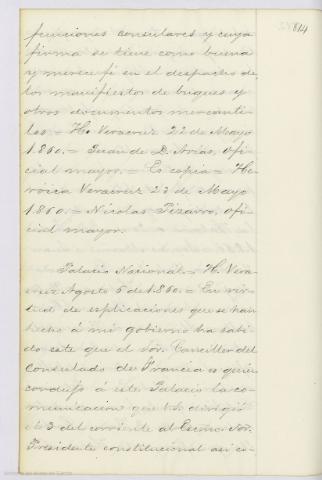 814
funciones consulares y cuya
firma se tiene como buena
y merece fé en el despacho de
los manifiestos de buques y
otros documentos mercanti-
les. = H. Veracruz 22 de Mayo
1860. = Juan de D. Arias, ofi-
cial mayor. = Es copia = He-
róica Veracruz 23 de Mayo
1860. = Nicolas Pizarro, ofi-
cial mayor.
Palacio Nacional. = H. Vera-
cruz Agosto 5 de 1860. = En vir-
tud de esplicaciones que se han
hecho á mi gobierno ha sabi-
do este que el Sor. Canciller del
Consulado de Francia es quien
condujo á este Palacio la co-
municacion que dirigió
el 3 del corriente al Escmo. Sor.
Presidente constitucional así co-